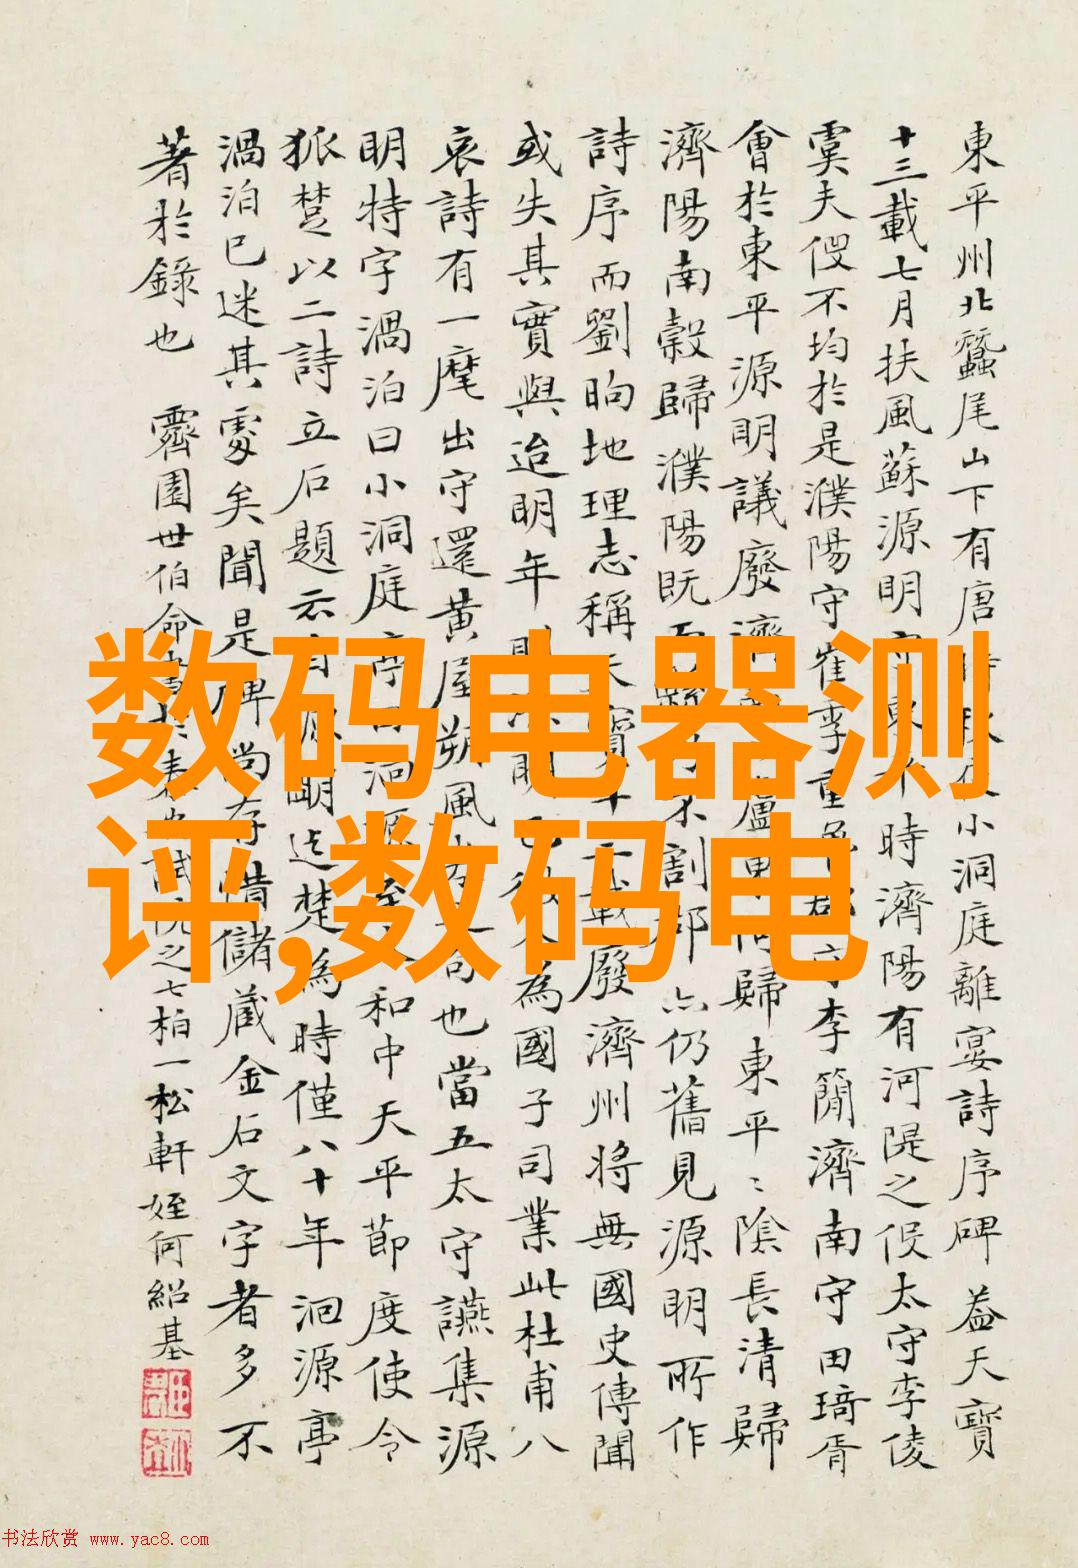 東平州北蠶尾山下有唐小洞庭離宴詩序碑蓋天寶
十三載七月扶風蘇源明時濟陽有河隄之役太守李倰
虞夫役不均於是濮陽守崔季重李簡濟南守田琦胥
會於東平源明議廢濟歸東平〻陰長清歸
濟陽南穀歸濮陽既而割郡亦仍舊見源明所作
詩序而劉昫地理志稱天寶載廢濟州將無國史傳聞
或失其實與迨明年為國子司業此杜甫八
哀詩有一麾出守還黃屋朔風句也當五太守讌集源
明特字渦泊曰小洞庭和中天平節度使令
狐楚以二詩立石題云明迄楚為時僅八十年洄源亭
渦泊已迷其處矣聞是碑尚存惜儲蔵金石文字者多不
著於錄也 霽園世伯命之七柏一松軒姪何紹基
数码电器测
评,数码电
书法欣赏 www.yac8.com